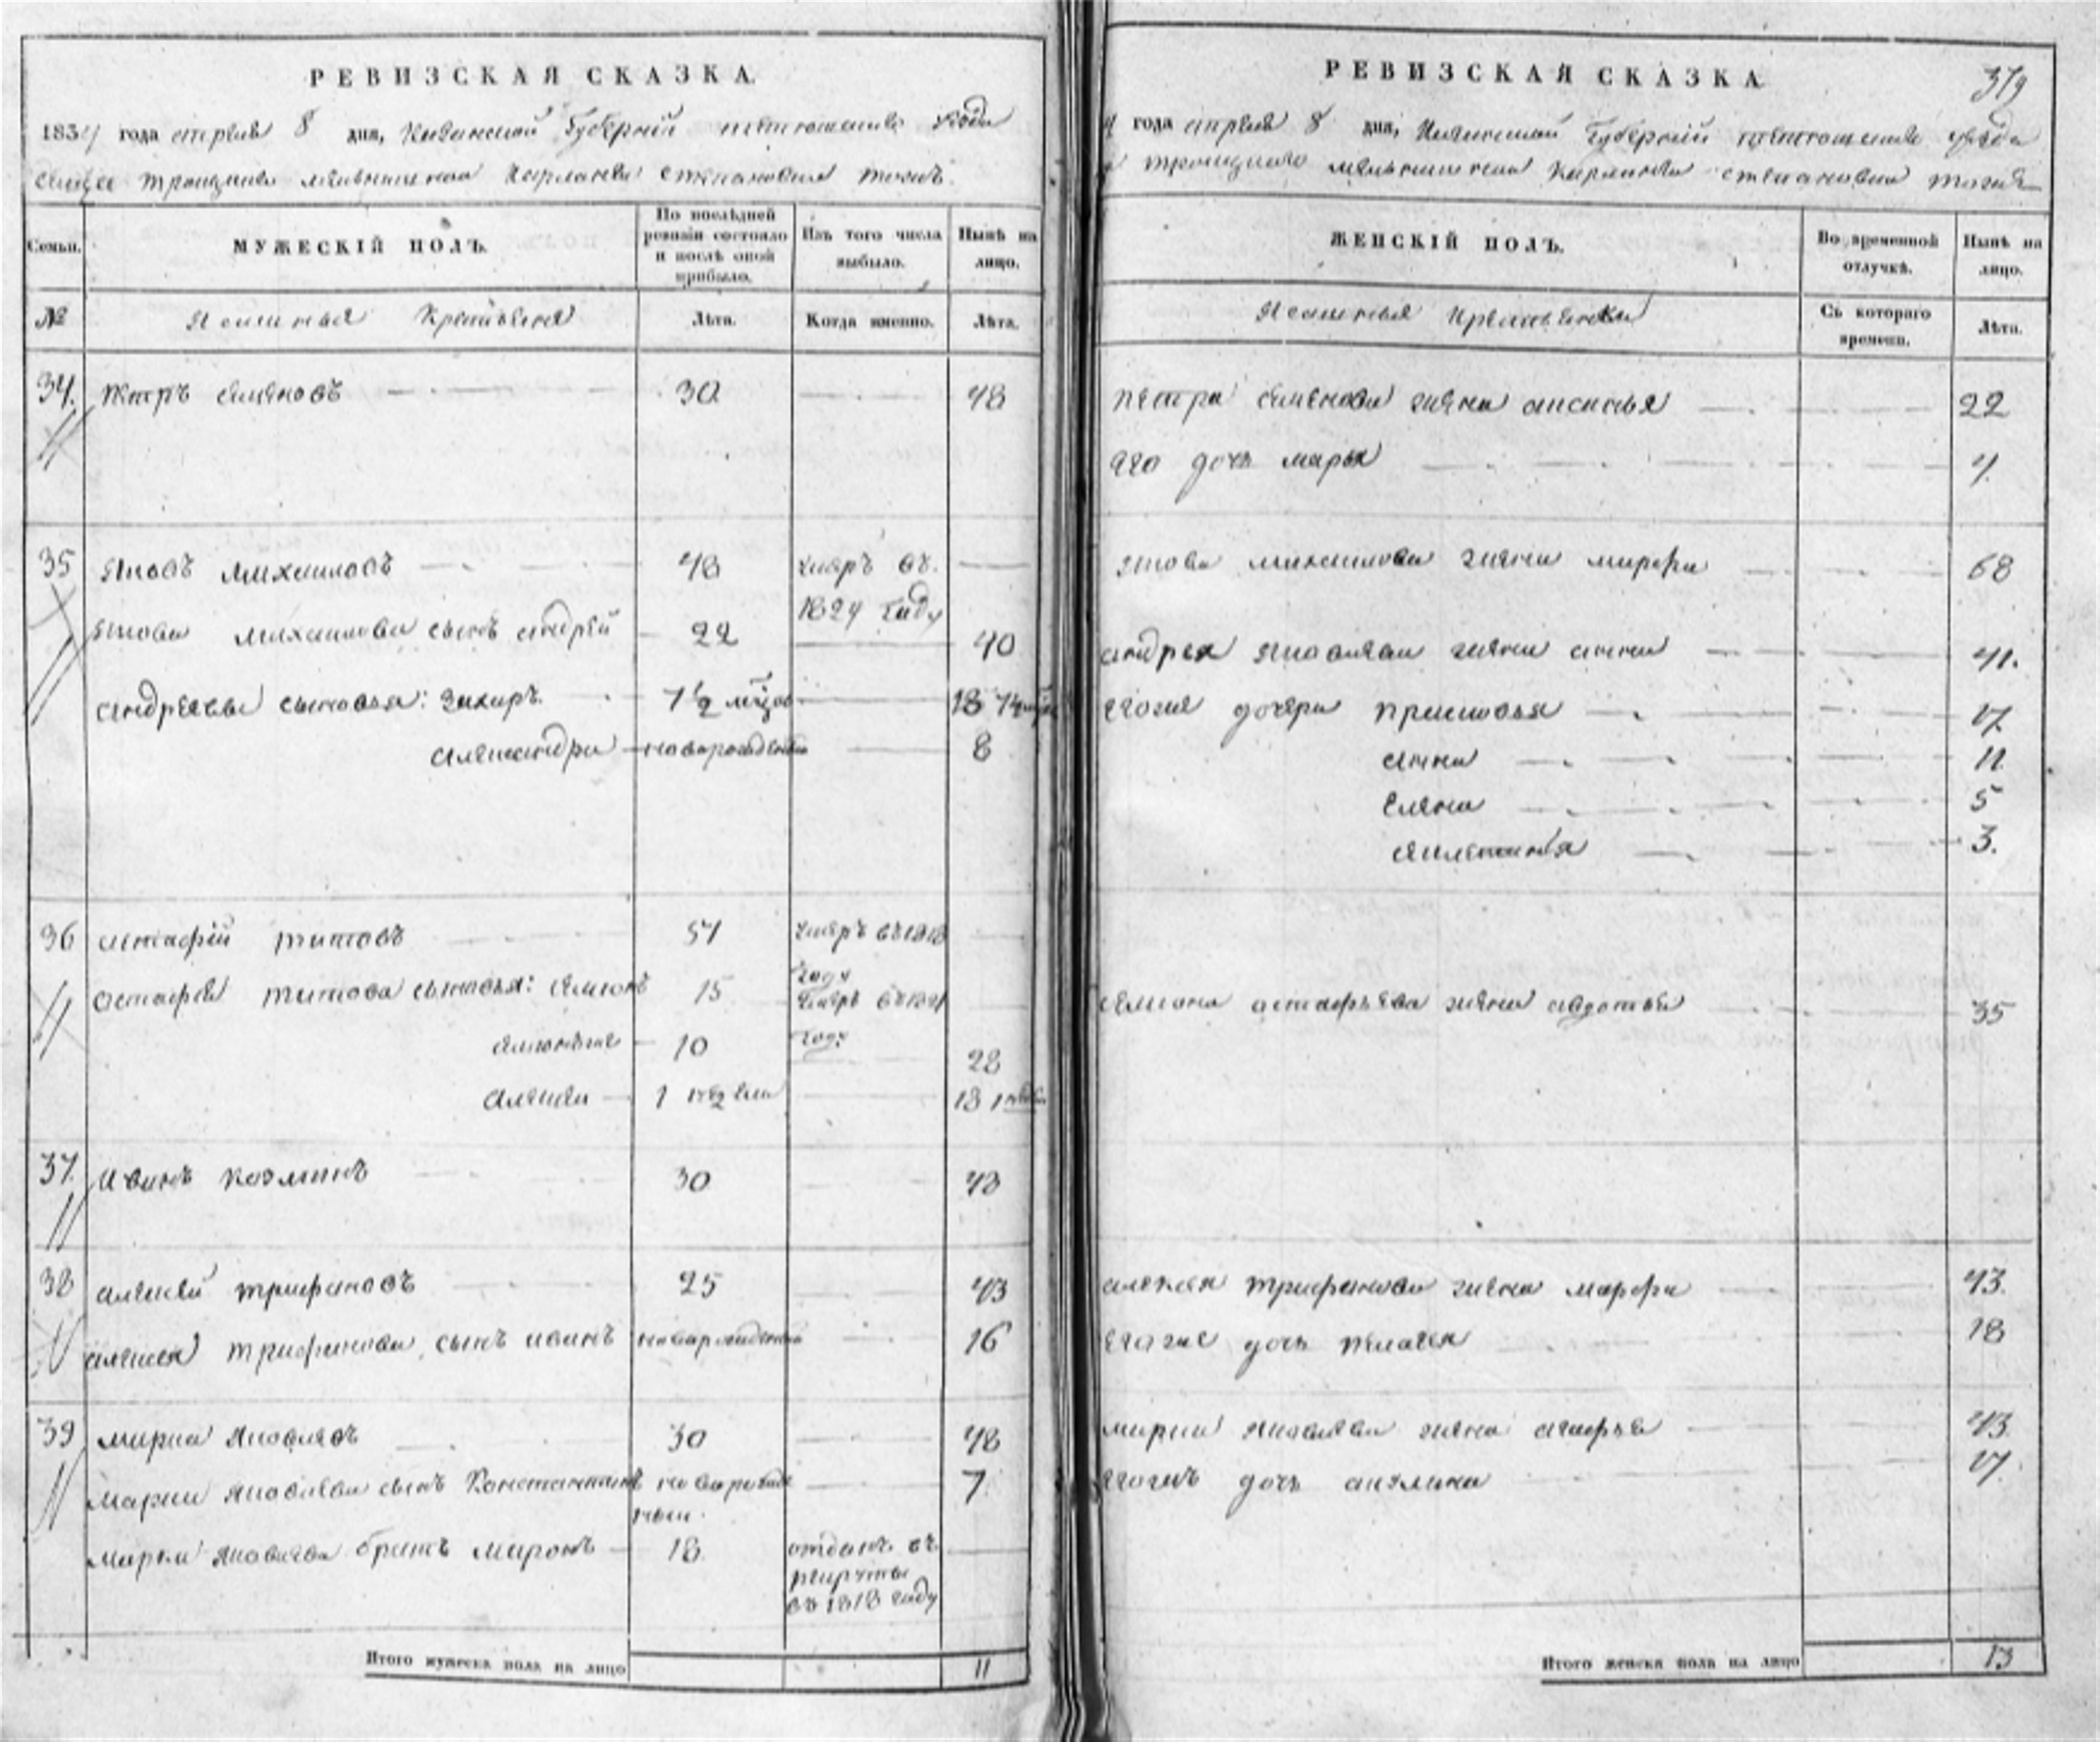 РЕВИЗСКАЯ СКАЗКА.
1834 года апреля 8 дня, Казанской Губерніи тетюшскаго уезда
троицкаго Карланга степановка тожъ.
Семьи. МУЖЕСКІЙ ПОЛЪ. По послѣдней ревизіи состояло и послѣ оной прибыло. Изъ того числа выбыло. Нынѣ на лицо.
№ Ясашныя Крестьяня Лѣта. Когда именно. Лѣта.
34. Петръ семеновъ 30 48
35 Яковъ михаиловъ 48 умеръ въ 1824 году
Якова михаилова сынъ андрей 22 40
андреевы сыновья: захаръ 7½ мцов 18 7½
александра новорожденны 8
36 астафій титовъ 57 умеръ въ 1818 году
астафья титова сыновья: семионъ 15 умеръ въ 1821 году
10 28
алексеи 1 недели 18 1 недели
37. Иванъ козминъ 30 48
38 алексеи трифановъ 25 43
алексея трифанова сынъ иванъ новорожденны 16
39 марка яковлевъ 30 48
марки яковлева сынъ Константинъ новорожденны 7
марки яковлева братъ миронъ 18 отданъ въ рекруты въ 1818 году
Итого мужеска пола на лицо 11
РЕВИЗСКАЯ СКАЗКА 379
4 года апреля 8 дня, Казанской Губерніи тетюшскаго уезда
троицкаго Карланга степановка тожъ
ЖЕНСКІЙ ПОЛЪ. Во временной отлучкѣ. Нынѣ на лицо.
Ясашныя Крестьянки Съ котораго времени. Лѣта.
петра семенова жена аксинья 22
его дочь марья 4
якова михаилова жена марфа 68
андрея яковлева жена анна 41.
евоже дочери прасковья 17
анна 11
елена 5
3.
семиона астафьева жена авдотья 35
алексея трифанова жена марфа 43.
евоже дочь пелагея 18
марки яковлева жена агафья 43
евожъ дочь акулина 17
Итого женска пола на лицо 13